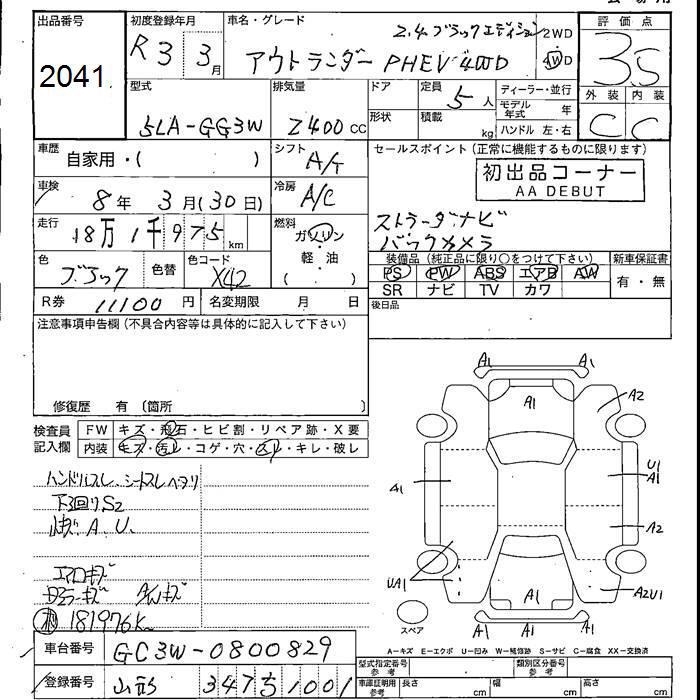 会場用
出品番号
2041
初度登録年月
R3 3月
車名・グレード
2.4.ブラックエディション
アウトランダー PHEV 4WD
2WD
4WD
評価点
3.5
外装 内装
C C
型式
5LA-GG3W
排気量
2400cc
ドア
形状
定員
5人
積載
kg
ディーラー・並行
モデル年式 年
ハンドル 左・右
車歴
自家用・( )
シフト
A/T
車検
8年 3月(30日)
冷房
A/C
走行
18万1千975km
燃料
ガソリン
軽・油
( )
色
ブラック
色替
色コード
X42
R券 11100円
名変期限 月 日
セールスポイント(正常に機能するものに限ります)
初出品コーナー
AA DEBUT
ストラーダナビ
バックカメラ
装備品(純正品に限り○をつけて下さい)
PS PW ABS エアB AW
SR ナビ TV カワ
新車保証書
有・無
後日品
注意事項申告欄(不具合内容等は具体的に記入して下さい)
修復歴 有 〔箇所 〕
検査員記入欄
FW キズ・飛石・ヒビ割・リペア跡・X要
内装 キズ・汚レ・コゲ・穴・スレ・キレ・破レ
ハンドルスレ、シートスレヘタリ
下回りS2
A.U.
エアロキズ
ドアミラーキズ A/Wキズ
181976K
A1 A1
A1
A2
A1
U1
A1
A2
UA1
A2U1
A1
A1 A1 A1
スペア
A-キズ E-エクボ U-凹み W-補修跡 S-サビ C-腐食 XX-交換済
車台番号
GC3W-0800829
登録番号
山形 347 ち 1001
型式指定番号
参考
類別区分番号
参考
車庫証明用
参考
長さ cm
幅 cm
高さ cm